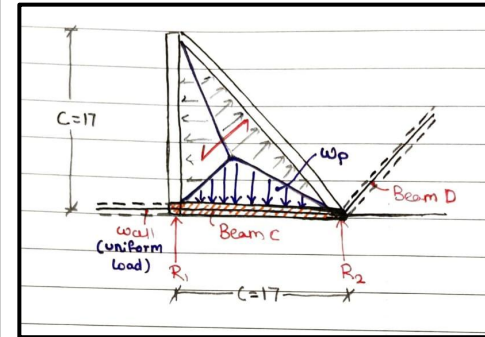 C=17
wp
Beam D
wall
(uniform
load)
Beam C
R1
R2
C=17